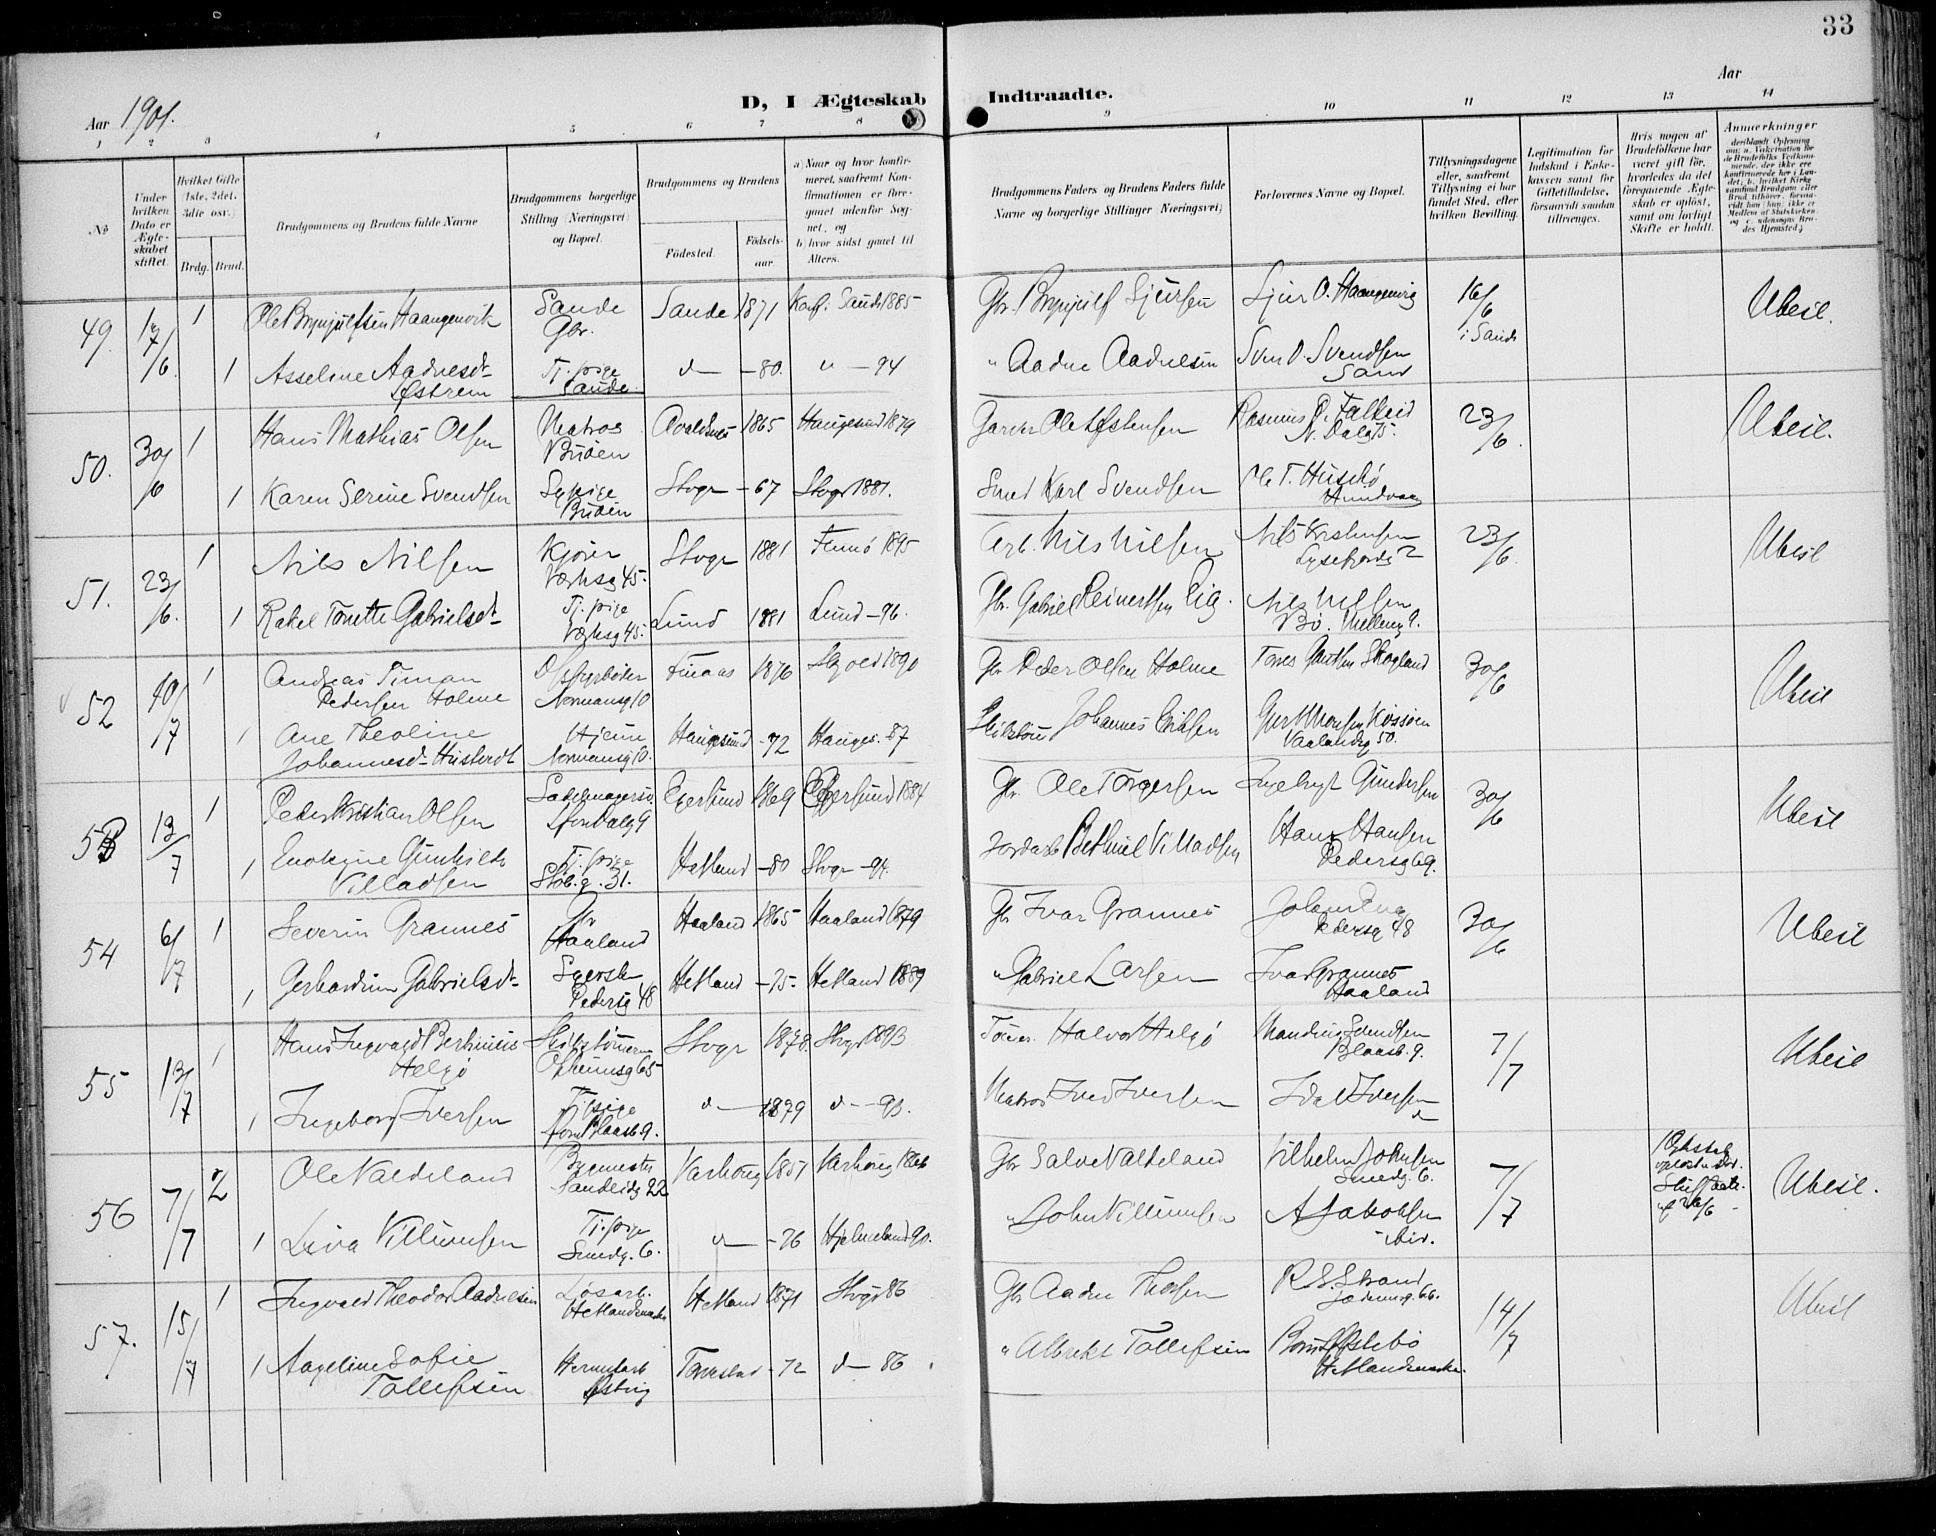 33
Aar 1901.
D, I Ægteskab Indtraadte.
Aar
1 2 3 4 5 6 7 8 9 10 11 12 13 14
No
Under hvilken Dato er Ægteskabet stiftet.
Hvilket Gifte (1ste, 2det, 3die osv.)
Brdg. Brud.
Brudgommens og Brudens fulde Navne
Brudgommens borgerlige Stilling (Næringsvei) og Bopæl.
Brudgommens og Brudens
Fødested. Fødselsaar.
a) Naar og hvor konfirmeret, saafremt Konfirmationen er foregaaet udenfor Sognet, og b) hvor sidst gaaet til Alters.
Brudgommens Faders og Brudens Faders fulde Navne og borgerlige Stillinger (Næringsvei)
Forlovernes Navne og Bopæl.
Tillysningsdagene eller, saafremt Tillysning ei har fundet Sted, efter hvilken Bevilling.
Legitimation for Indskud i Enkekassen samt for Giftetilladelse, forsaavidt saadan tiltrænges.
Hvis nogen af Brudefolkene har været gift før, hvorledes da det foregaaende Ægteskab er opløst, samt om lovligt Skifte er holdt.
Anmerkninger
49. 17/6. 1 Ole Brynjulfsen Haangenvik Sande Gbr. Sande 1871 Konf. Sande 1885 Gbr. Brynjulf Sjursen Sjur O. Haangenvig 16/6 i Sande Ubesl.
1 Asseline Aadnesdt Østrem Tj. pige Sande. d— -80. " - 94 " Aadne Aadnesen Sven O. Svendsen Sand
50. 30/6 1 Hans Mathias Olsen Matros Buøen Avaldsnes 1865 Haugesund 1879 Garver Ole Østensen Rasmus P. Falkeid N. Dalg 15. 23/6. Ubesl.
1 Karen Serine Svendsen Sypige Buøen Stvgr -67 Stvgr 1881. Smed Karl Svendsen Ole T. Husebø Hundvaag
51. 23/6. 1 Nils Nilsen Kjører Verksg 45. Stvgr 1881 Finnø 1895 Arb. Nils Nilsen Nils Kristensen Lysefjordg 2 23/6. Ubesl
1 Rakel Tonette Gabrielsdt Tj. pige Verksg 45. Lund 1881 Lund - 96. Gbr. Gabriel Reinertsen Eig. Nils Nilsen Bø. Mølleng 9.
52 10/7 1 Andreas Timan Pedersen Holme Normansg 10 Finaas 1876 Skjold 1890 Gbr Peder Olsen Holme Tores Skogland 30/6 Ubesl
1 Ane Theoline Johannesdt Husteidt Hjem Normansg 10. Haugesund -72 Hauges. 87 Johannes Eriksen Vaalandsg 50.
53 13/7 1 Peder Kristian Olsen Sadelmagersv. Egersund 1869 Egersund 1884 Gbr. Ole Torgersen Ingebrigt Gundersen 30/6 Ubesl
1 Enokine Gunhilde Villadsen Tj. pige Stob. g. 31. Hetland -80 Stvgr -94. Jordarb Bethuel Villadsen Hans Hansen Pedersg 69.
54 6/7 1 Severin Grannes Gbr Haaland Haaland 1865 Haaland 1879 Gbr Ivar Grannes Pedersg 48 30/6 Ubesl
1 Gerhardine Gabrielsdt Syerske Pedersg 48 Hetland -75- Hetland 1889 " Gabriel Larsen Ivar Grannes Haaland
55 13/7 1 Hans Ingvald Berthinius Helgø Skibstømmerm Opheimsg 65 Stvgr 1878. Stvgr 1893 Tømr. Halvor Helgø Mandius Svendsen Blaasb. 9. 7/7 Ubesl
1 Ingeborg Iversen Tj. pige Blaasb 9. d— 1879 d— -93. Matros Iver Iversen Iversen d—
56 7/7 2 Ole Valdeland Bygmester Sandeidg 22 Varhoug 1851 Varhoug 1866 Gbr Salve Valdeland Vilhelm Johnsen Smedg. 6. 7/7 Ægtesk. opløst v. død. Skifteatt. af 26/6 Ubesl.
1 Liva Villumsen Tj. pige Smedg. 6. d— -76 Hjelmeland 90. " John Villumsen A Jakobsen ibid.
57. 15/7 1 Ingvald Theodor Aadnesen Løsarb. Hetlandsmarken Hetland 1871 Stvgr 86 Gbr Aadne Thorsen R. S. Strand Jædersg. 66. 14/7 Ubesl
1 Aageline Sofie Tollefsen Hermetarb Østvig Torvestad -72 d— 86. " Albrekt Tollefsen Østebø Hetlandsmarken